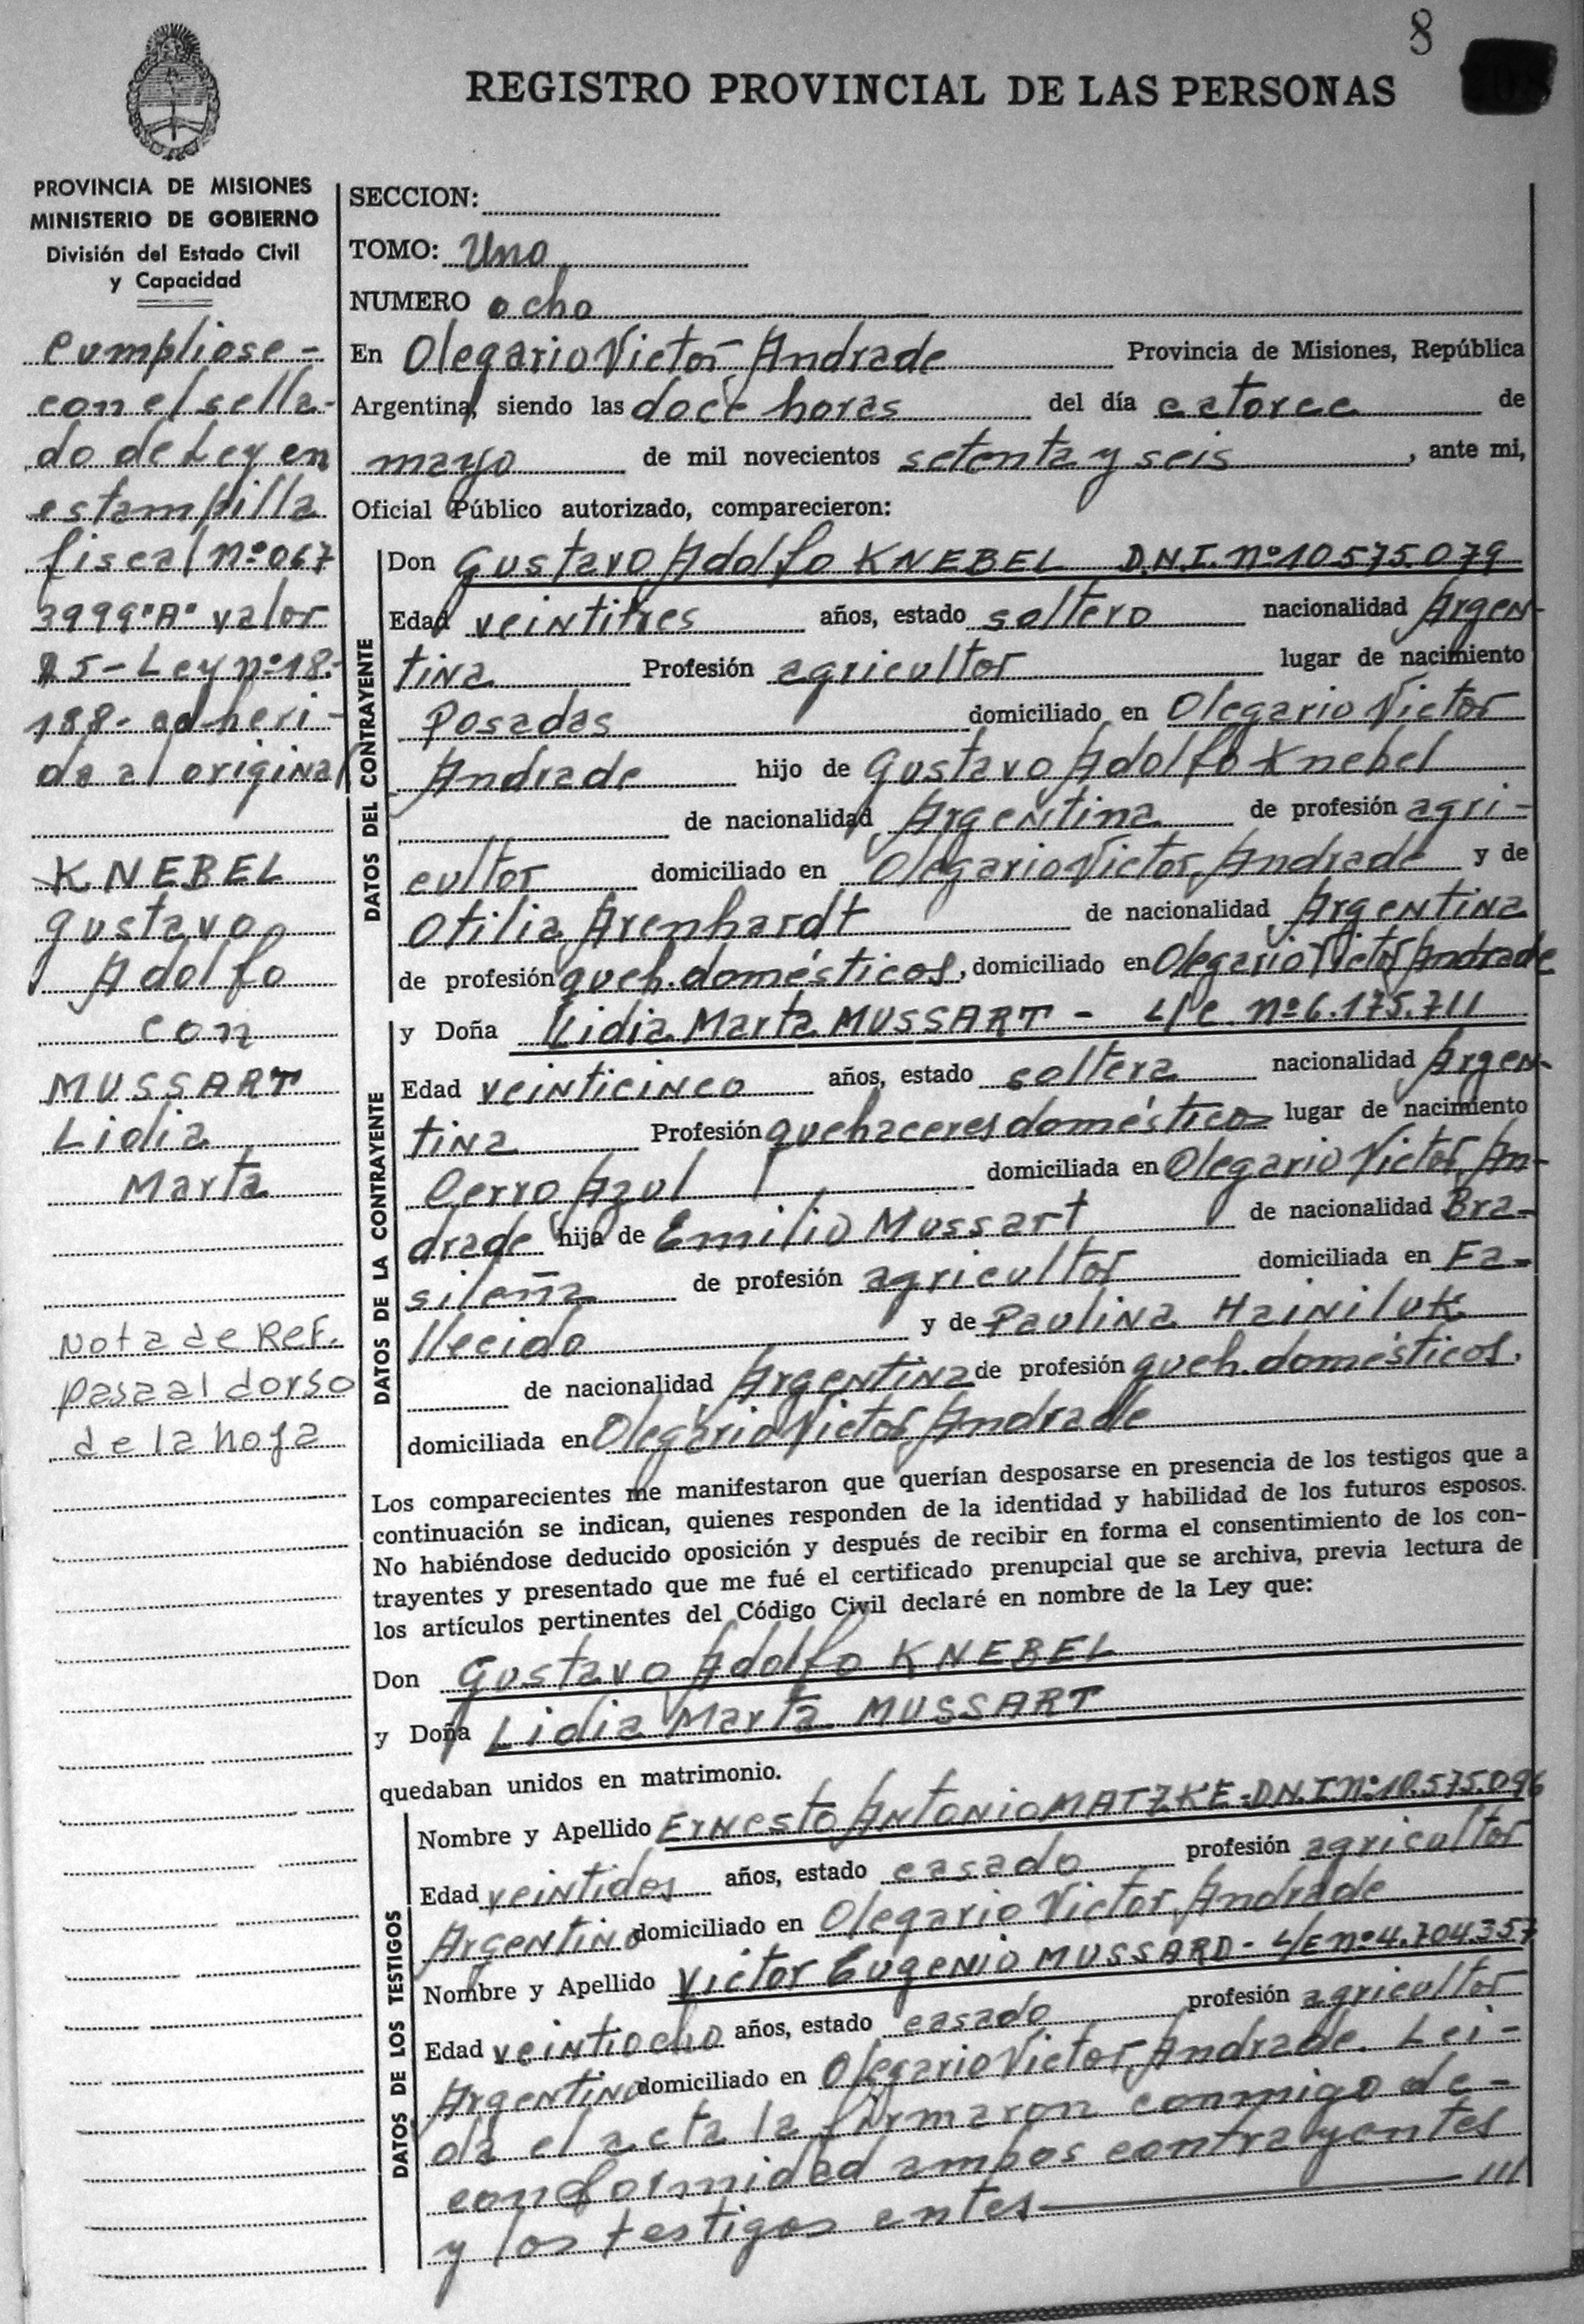 8
REGISTRO PROVINCIAL DE LAS PERSONAS
PROVINCIA DE MISIONES
MINISTERIO DE GOBIERNO
División del Estado Civil
y Capacidad
Cumpliose-
con el sella-
do de Ley en
estampilla
fiscal nº067
3999"A" valor
15-Ley nº18.
188- adheri-
da al original
KNEBEL
Gustavo
Adolfo
con
MUSSART
Lidia
Marta
Nota de Ref.
pasa al dorso
de la hoja
SECCION:
TOMO: Uno
NUMERO ocho
En Olegario Victor Andrade Provincia de Misiones, República
Argentina, siendo las doce horas del día catorce de
mayo de mil novecientos setenta y seis, ante mi,
Oficial Público autorizado, comparecieron:
DATOS DEL CONTRAYENTE
Don Gustavo Adolfo KNEBEL D.N.I. nº10.575.079
Edad veintitres años, estado soltero nacionalidad Argen-
tina Profesión agricultor lugar de nacimiento
Posadas domiciliado en Olegario Victor
Andrade hijo de Gustavo Adolfo Knebel
de nacionalidad Argentina de profesión agri-
cultor domiciliado en Olegario Victor Andrade y de
Otilia Arenhardt de nacionalidad Argentina
de profesión queh.domésticos, domiciliado en Olegario Victor Andrade
DATOS DE LA CONTRAYENTE
y Doña Lidia Marta MUSSART - L/C. nº6.175.711
Edad veinticinco años, estado soltera nacionalidad Argen-
tina Profesión quehaceres domésticos lugar de nacimiento
Cerro Azul domiciliada en Olegario Victor An-
drade hija de Emilio Mussart de nacionalidad Bra-
sileña de profesión agricultor domiciliada en Fa-
llecido y de Paulina Hainiluk
de nacionalidad Argentina de profesión queh.domésticos,
domiciliada en Olegario Victor Andrade
Los comparecientes me manifestaron que querían desposarse en presencia de los testigos que a
continuación se indican, quienes responden de la identidad y habilidad de los futuros esposos.
No habiéndose deducido oposición y después de recibir en forma el consentimiento de los con-
trayentes y presentado que me fué el certificado prenupcial que se archiva, previa lectura de
los artículos pertinentes del Código Civil declaré en nombre de la Ley que:
Don Gustavo Adolfo KNEBEL
y Doña Lidia Marta MUSSART
quedaban unidos en matrimonio.
DATOS DE LOS TESTIGOS
Nombre y Apellido Ernesto Antonio MATZKE-D.N.I.nº10.575.096
Edad veintidos años, estado casado profesión agricultor
Argentino domiciliado en Olegario Victor Andrade
Nombre y Apellido Victor Eugenio MUSSARD- L/E nº4.704.357
Edad veintiocho años, estado casado profesión agricultor
Argentino domiciliado en Olegario Victor Andrade. Lei-
da el acta la firmaron conmigo de-
conformidad ambos contrayentes
y los testigos entes ///